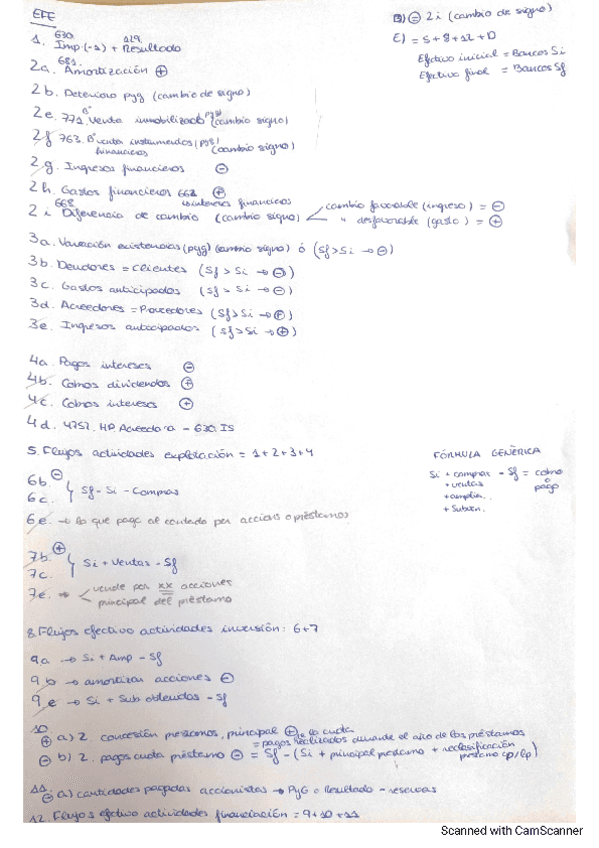 EFE
630 129
1. Imp (-1) + Resultado
681
2a. Amortización ⊕
2b. Deterioro pyg (cambio de signo)
2e. 771 Bº venta inmovilizado pyg (cambio signo)
2f. 763 Bº venta instrumentos (pyg)
financieros (cambio signo)
2g. Ingresos financieros ⊖
2h. Gastos financieros 662 ⊕
668 intereses financieros
2i Diferencia de cambio (cambio signo) cambio favorable (ingreso) = ⊖
" desfavorable (gasto) = ⊕
3a. Variación existencias (pyg) (cambio signo) ó (Sf > Si → ⊖)
3b. Deudores = clientes (Sf > Si → ⊖)
3c. Gastos anticipados (Sf > Si → ⊖)
3d. Acreedores = Proveedores (Sf > Si → ⊕)
3e. Ingresos anticipados (Sf > Si → ⊕)
4a. Pagos intereses ⊖
4b. Cobros dividendos ⊕
4c. Cobros intereses ⊕
4d. 4752. HP Acreedora - 630. IS
5. Flujos actividades explotación = 1+2+3+4
6b. ⊖
6c. Sf - Si - Compras
6e. → lo que paga al contado por acciones o préstamos
7b. ⊕
7c. Si + Ventas - Sf
7e. → vende por xx acciones
principal del préstamo
8. Flujos efectivo actividades inversión: 6+7
9a → Si + Amp - Sf
9b → amortizar acciones ⊖
9e → Si + Sub obtenidas - Sf
10
⊕ a) 2. concesión préstamos, principal ⊕
= pagos realizados durante el año de los préstamos
⊖ b) 2. pagos cuota préstamo ⊖ = Sf - (Si + principal préstamo + reclasificación
préstamo cp/lp)
11.
⊖ a) cantidades pagadas accionistas → PyG o Resultado - reservas
12. Flujos efectivo actividades financiación = 9+10+11
D) = 2i (cambio de signo)
E) = 5 + 8 + 12 + D
Efectivo inicial = Bancos Si
Efectivo final = Bancos Sf
FÓRMULA GENÉRICA
Si + compras - Sf = cobro
+ ventas o
+ amplia. pago
+ Subven.
Scanned with CamScanner